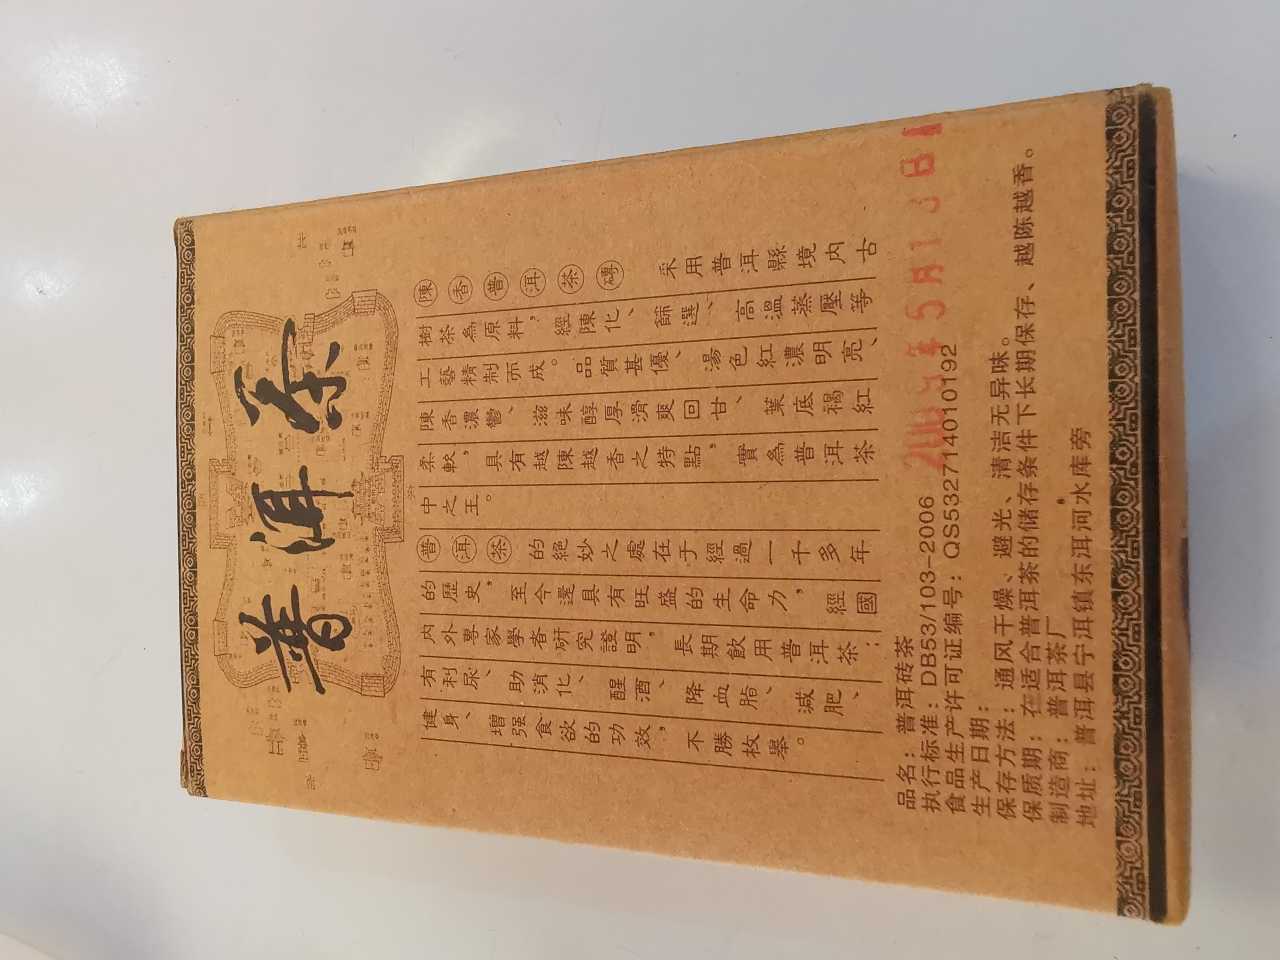 普洱茶
陳香普洱茶磚 采用普洱縣境内古
樹茶為原料，經陳化、篩選、高温蒸壓等
工藝精制而成。品質甚優、湯色紅濃明亮、
陳香濃鬱、滋味醇厚滑爽回甘、葉底褐紅
柔軟，具有越陳越香之特點，實為普洱茶
中之王。
普洱茶的絕妙之處在于經過一千多年
的歷史，至今還具有旺盛的生命力，經國
内外專家學者研究證明，長期飲用普洱茶；
有利尿、助消化、醒酒、降血脂、減肥、
健身、增强食欲的功效，不勝枚舉。
品名：普洱砖茶
执行标准：DB53/103-2006
食品生产许可证编号：QS532714010192
生产日期： 5月13日
保存方法：通风干燥、避光、清洁无异味。
保质期：在适合普洱茶的储存条件下长期保存、越陈越香。
制造商：普洱茶厂
地址：普洱县宁洱镇东洱河水库旁